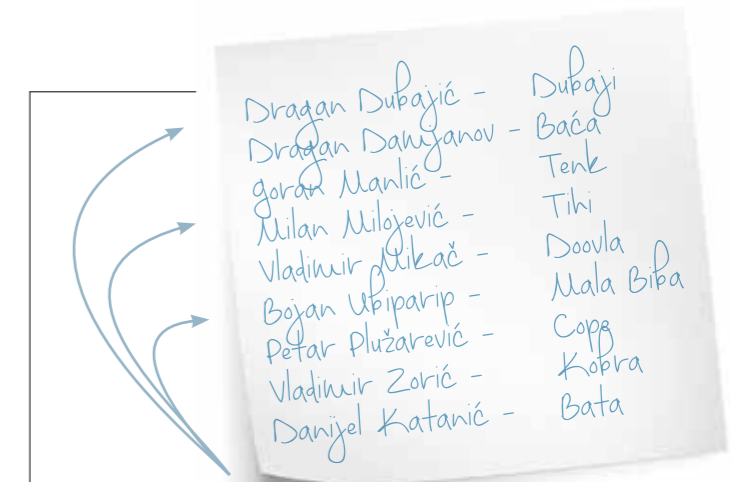 Dragan Dubajić - Dubaji
Dragan Damjanov - Baća
Goran Manlić - Tenk
Milan Milojević - Tihi
Vladimir Mikač - Doovla
Bojan Ubiparip - Mala Biba
Petar Plužarević - Cope
Vladimir Zorić - Kobra
Danijel Katanić - Bata